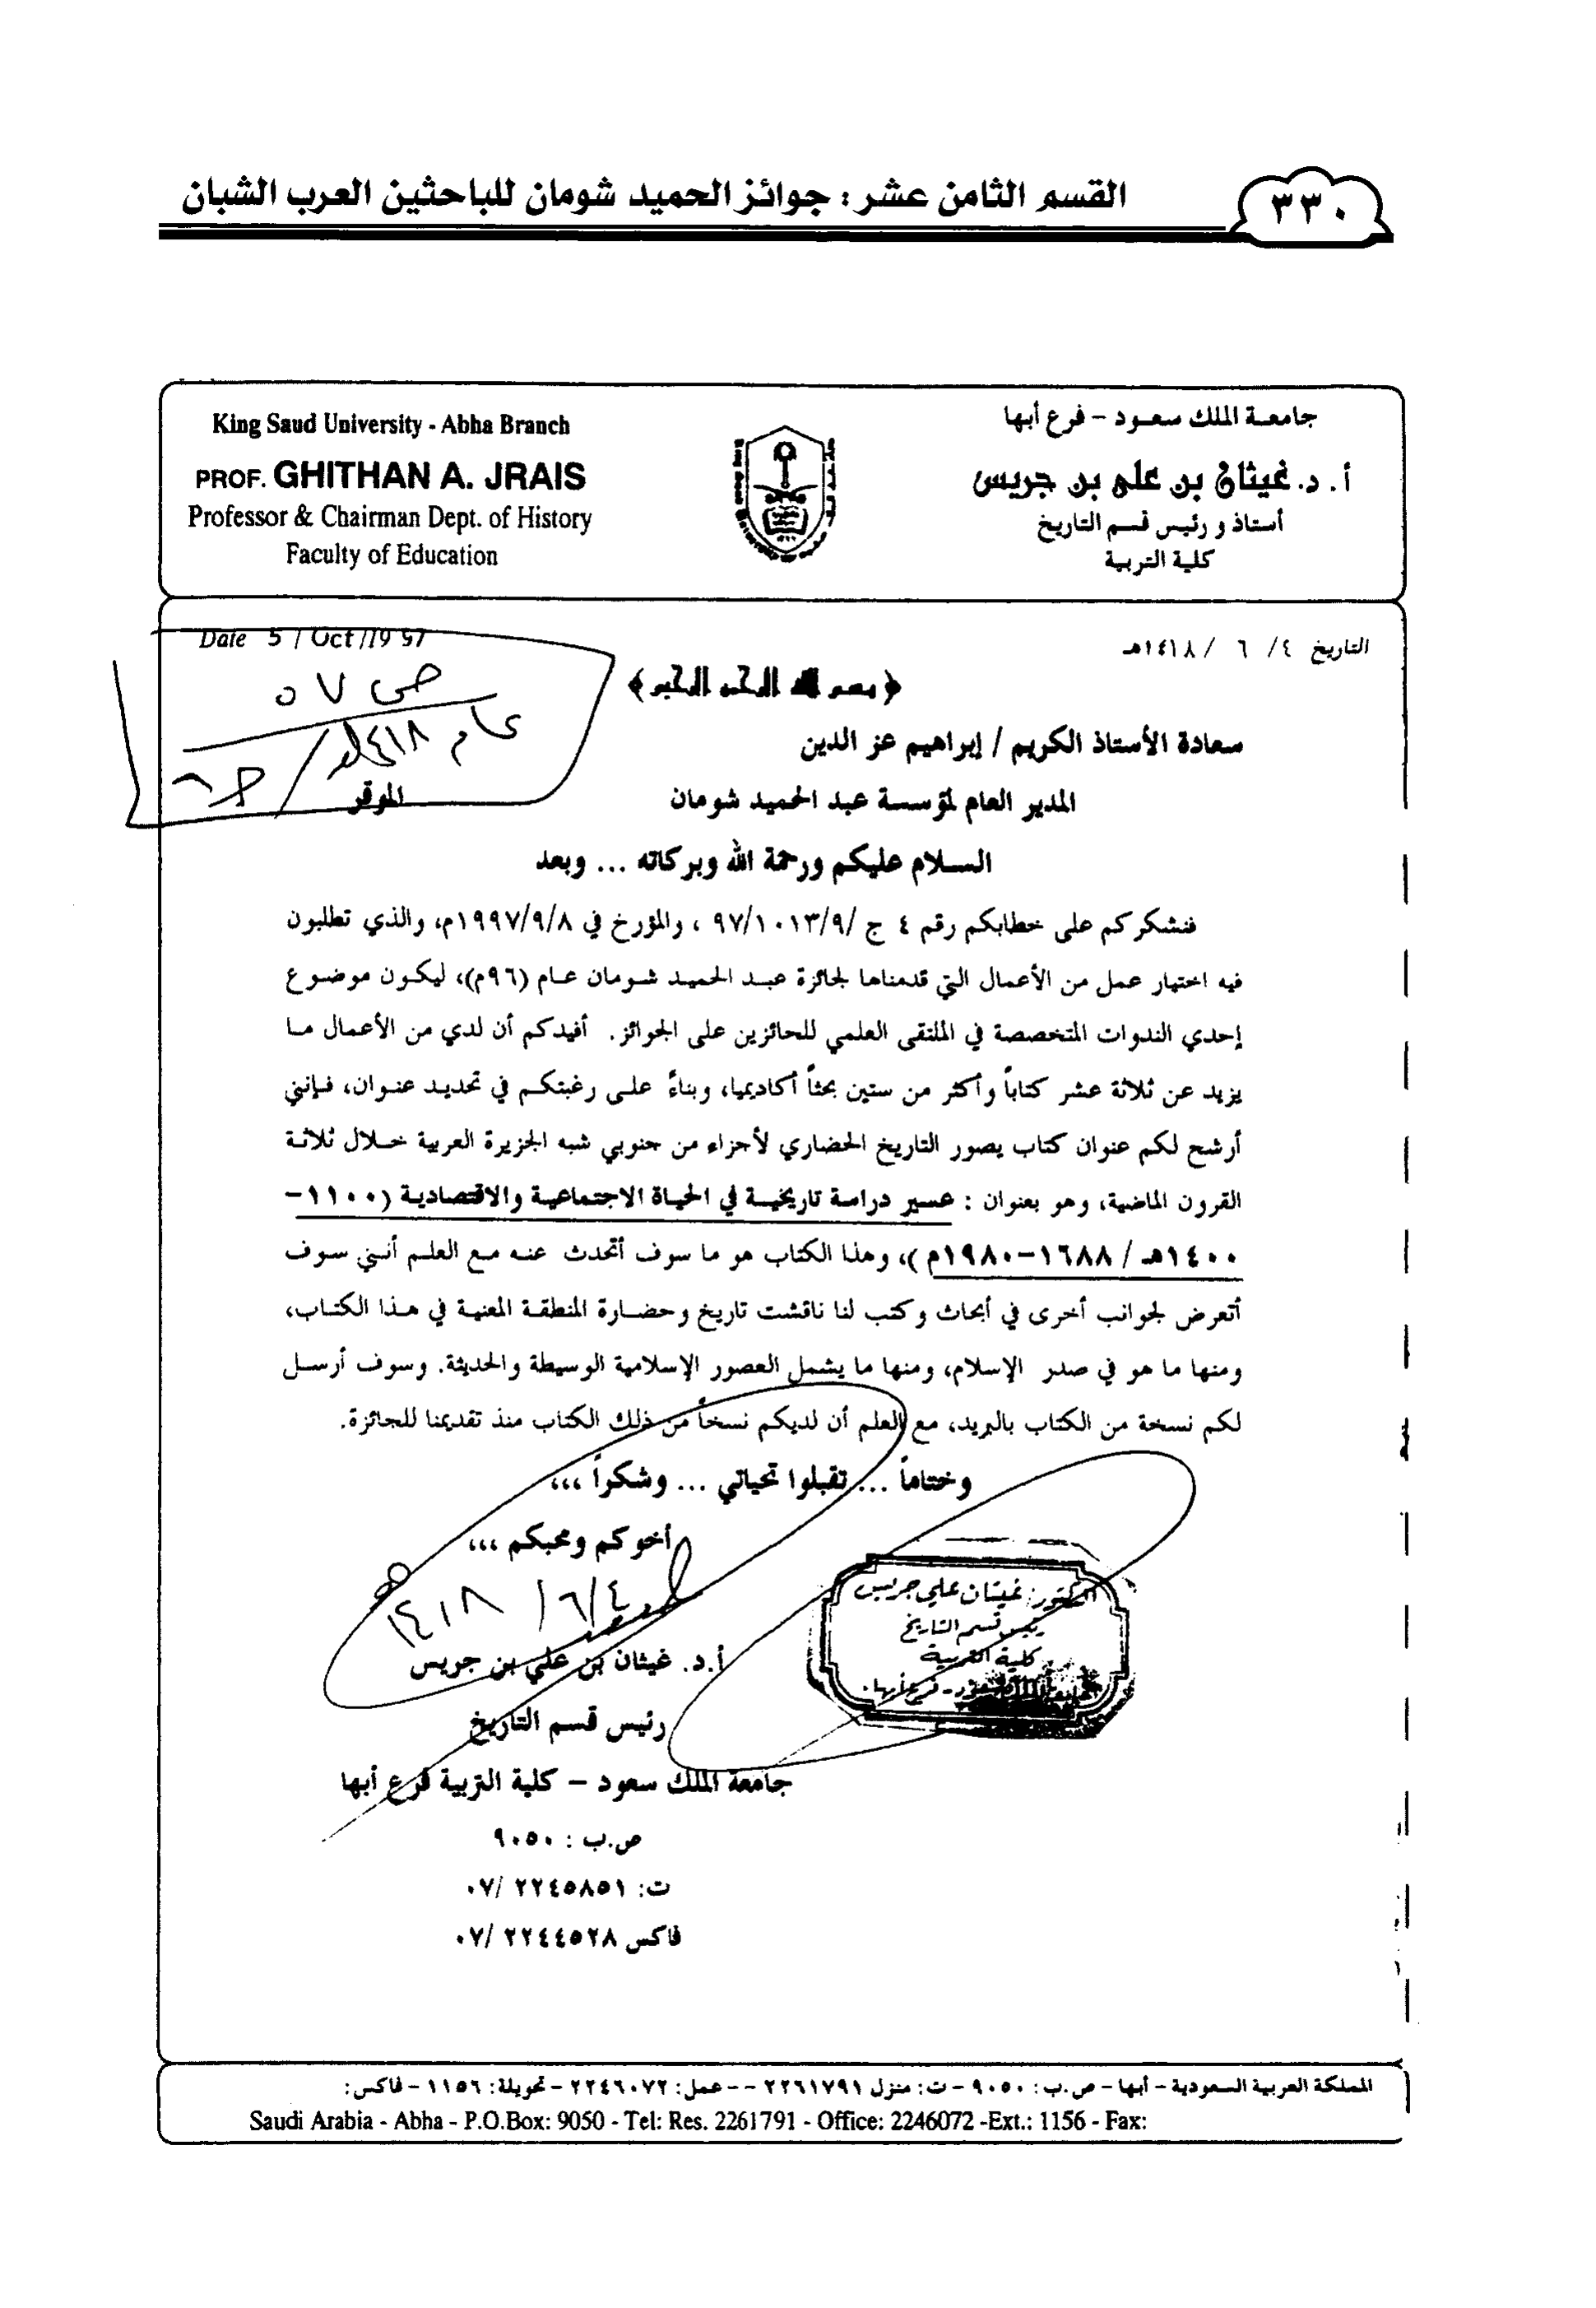 القسم الثامن عشر : جوائز الحميد شومان للباحثين العرب الشبان
٣٣٠
جامعة الملك سعود - فرع أبها
أ . د. غيثان بن علي بن جريس
أستاذ و رئيس قسم التاريخ
كلية التربية
King Saud University - Abha Branch
PROF. GHITHAN A. JRAIS
Professor & Chairman Dept. of History
Faculty of Education
التاريخ ٤/ ٦ /١٤١٨هـ
Date 5 / Oct /1997
﴿ بسم الله الرحمن الرحيم ﴾
ص ٥٧
عام ١٤١٨هـ /
سعادة الأستاذ الكريم / إبراهيم عز الدين
المدير العام لمؤسسة عبد الحميد شومان الموقر
السلام عليكم ورحمة الله وبركاته ... وبعد
فنشكركم على خطابكم رقم ٤ ج /٩٧/١٠١٣/٩ ، والمؤرخ في ١٩٩٧/٩/٨م، والذي تطلبون
فيه اختيار عمل من الأعمال التي قدمناها لجائزة عبد الحميد شومان عام (٩٦م)، ليكون موضوع
إحدي الندوات المتخصصة في الملتقى العلمي للحائزين على الجوائز. أفيدكم أن لدي من الأعمال ما
يزيد عن ثلاثة عشر كتاباً وأكثر من ستين بحثاً أكاديميا، وبناءً على رغبتكم في تحديد عنوان، فإنني
أرشح لكم عنوان كتاب يصور التاريخ الحضاري لأجزاء من جنوبي شبه الجزيرة العربية خلال ثلاثة
القرون الماضية، وهو بعنوان : عسير دراسة تاريخية في الحياة الاجتماعية والاقتصادية (١١٠٠-
١٤٠٠هـ / ١٦٨٨-١٩٨٠م )، وهذا الكتاب هو ما سوف أتحدث عنه مع العلم أنني سوف
أتعرض لجوانب أخرى في أبحاث وكتب لنا ناقشت تاريخ وحضارة المنطقة المعنية في هذا الكتاب،
ومنها ما هو في صدر الإسلام، ومنها ما يشمل العصور الإسلامية الوسيطة والحديثة. وسوف أرسل
لكم نسخة من الكتاب بالبريد، مع العلم أن لديكم نسخاً من ذلك الكتاب منذ تقديمنا للجائزة.
وختاماً ... تقبلوا تحياتي ... وشكراً ،،،
أخوكم ومحبكم ،،،
١٤١٨ /٦/٤
أ.د. غيثان بن علي بن جريس
رئيس قسم التاريخ
جامعة الملك سعود - كلية التربية فرع أبها
ص.ب : ٩٠٥٠
ت: ٢٢٤٥٨٥١ /٠٧
فاكس ٢٢٤٤٥٢٨ /٠٧
الدكتور: غيثان علي جريس
رئيس قسم التاريخ
كلية التربية
جامعة الملك سعود - فرع أبها.
المملكة العربية السعودية - أبها - ص.ب: ٩٠٥٠ - ت: منزل ٢٢٦١٧٩١ -- عمل: ٢٢٤٦٠٧٢ - تحويلة: ١١٥٦ - فاكس:
Saudi Arabia - Abha - P.O.Box: 9050 - Tel: Res. 2261791 - Office: 2246072 -Ext.: 1156 - Fax: